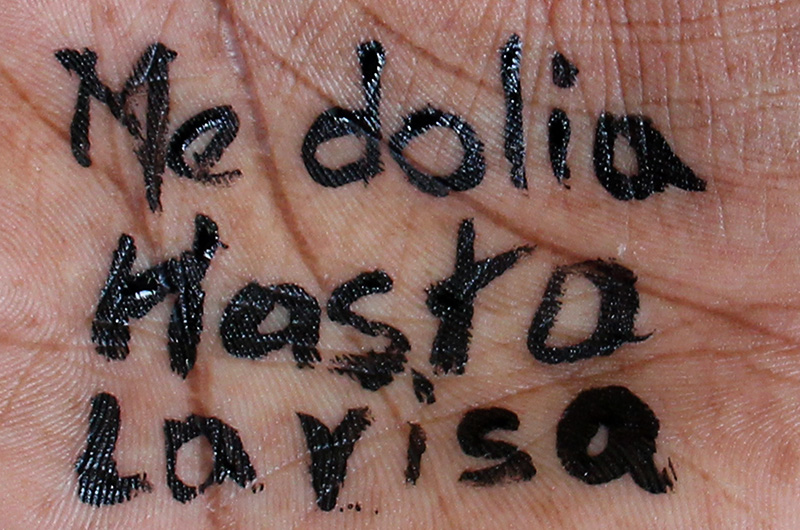 Me dolia
Hasta
La risa